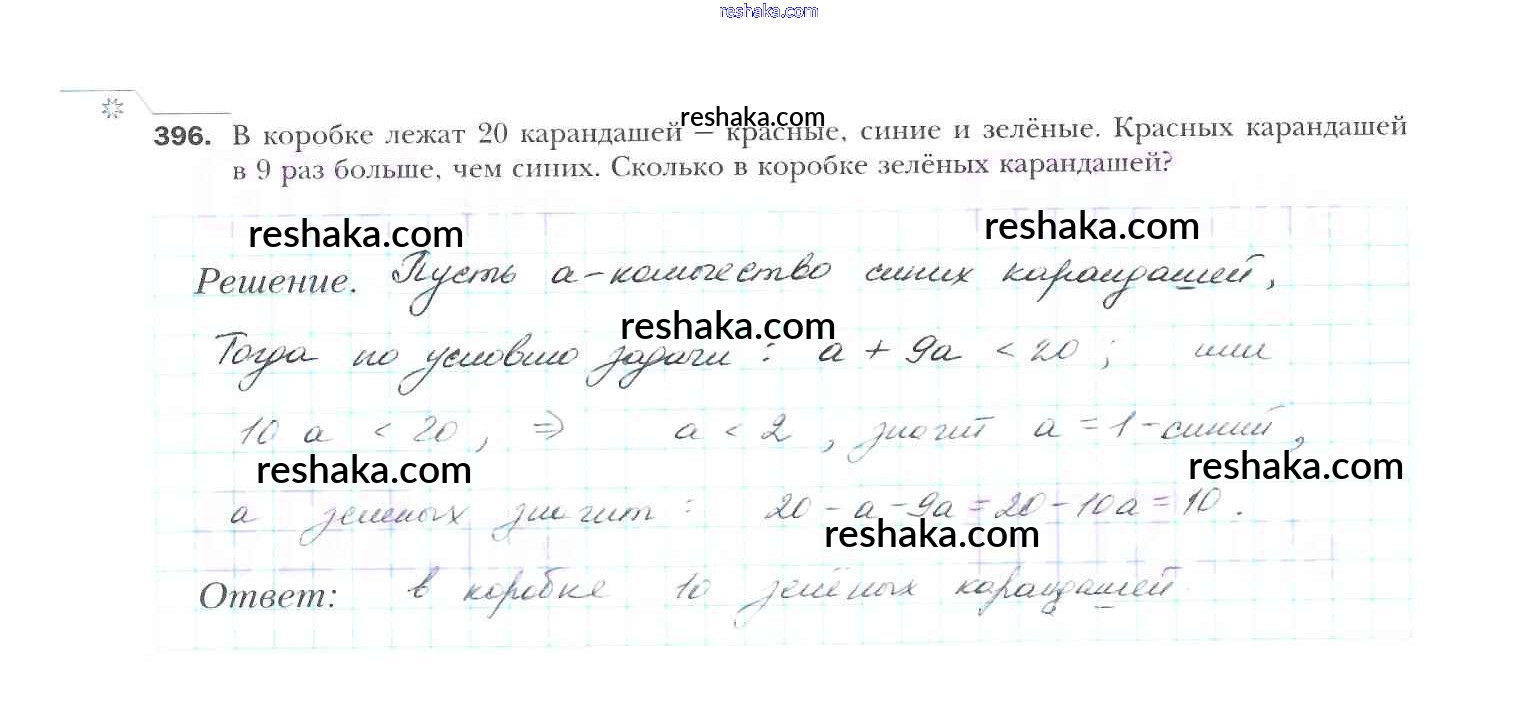 reshaka.com
reshaka.com
396. В коробке лежат 20 карандашей — красные, синие и зелёные. Красных карандашей
в 9 раз больше, чем синих. Сколько в коробке зелёных карандашей?
reshaka.com
reshaka.com
Решение. Пусть а - количество синих карандашей,
reshaka.com
Тогда по условию задачи : а + 9а < 20 ; или
10 а < 20 , ⇒ а < 2 , значит а = 1 - синий ,
reshaka.com
reshaka.com
а зеленых значит : 20 - а - 9а = 20 - 10а = 10 .
reshaka.com
Ответ: в коробке 10 зелёных карандашей